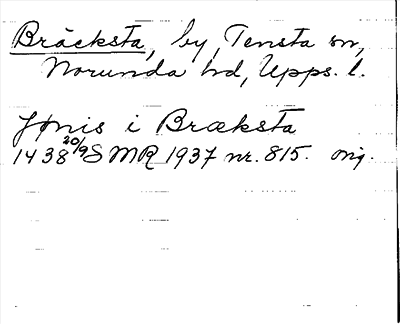 Bräcksta, by, Tensta sn,
Norunda hd, Upps. l.
Jønis i Bræksta
1438 20/9 S MR 1937 nr. 815. orig.